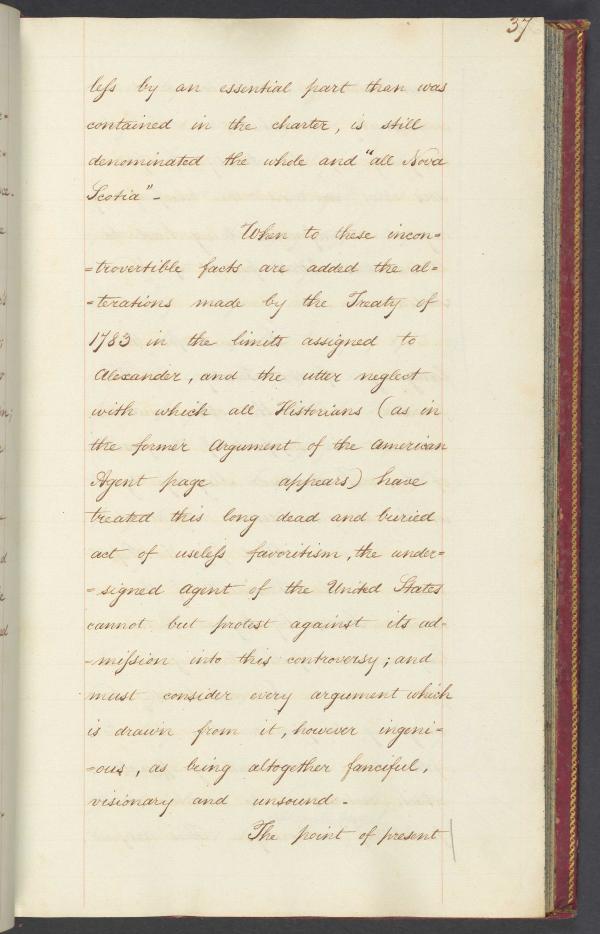 37
leſs by an essential part than was
contained in the charter, is still
denominated the whole and "all Nova
Scotia" -
When to these incon=
=trovertible facts are added the al=
=terations made by the Treaty of
1783 in the limits assigned to
Alexander, and the utter neglect
with which all Historians (as in
the former Argument of the American
Agent page appears) have
treated this long dead and buried
act of useleſs favoritism, the under=
=signed Agent of the United States
cannot but protest against its ad=
=miſsion into this controversy; and
must consider every argument which
is drawn from it, however ingeni=
=ous, as being altogether fanciful,
visionary and unsound -
The point of present